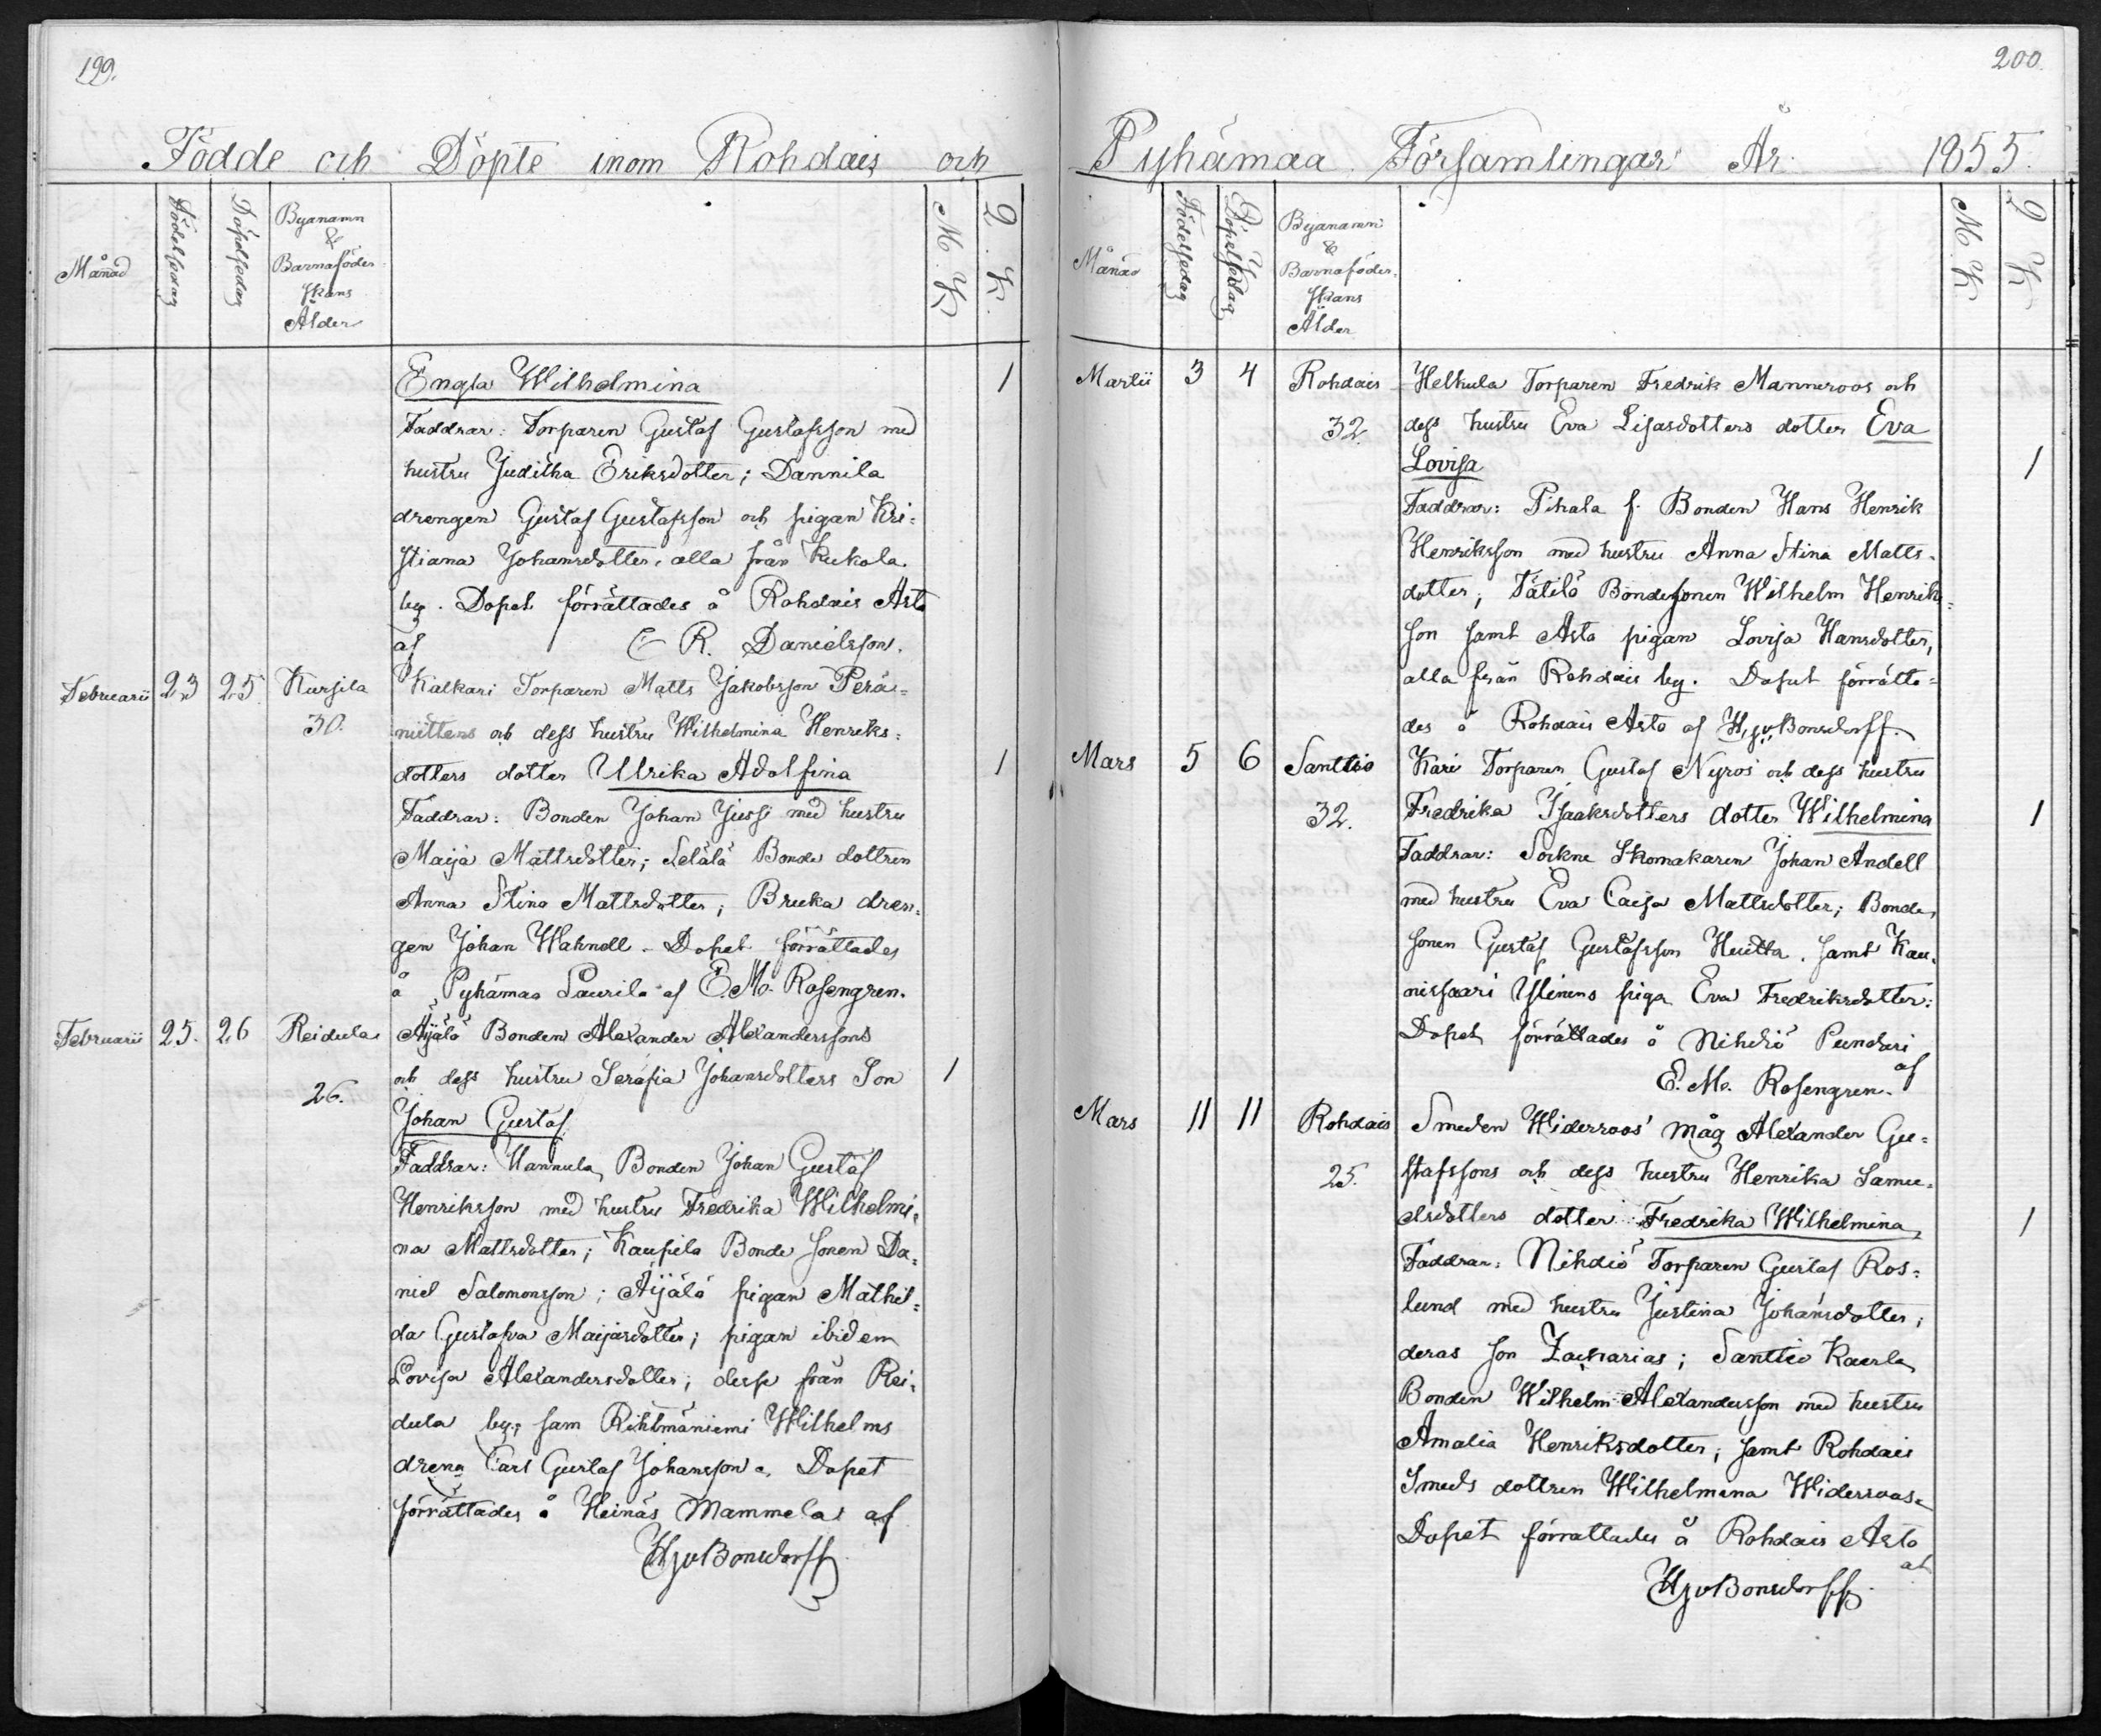 199.
Födde och Döpte inom Rohdais och
Månad
Födelsedag
Döpelsedag
Byanamn
&
Barnaföder-
skans
Ålder
M. K.
Q. K.
Engla Wilhelmina 1
Faddrar: Torparen Gustaf Gustafsson med
hustru Juditha Eriksdotter; Dannila
drengen Gustaf Gustafsson och pigan Kri=
stiana Johansdotter, alla från Kukola
by. Dopet förrättades å Rohdais Asto
af R. Danielsson.
Februarii 23 25. Kursila Kalkari Torparen Matts Jakobsson Perä=
30. niittens och dess hustru Wilhelmina Henriks=
dotters dotter Ulrika Adolfina 1
Faddrar: Bonden Johan Jussi med hustru
Maija Mattsdotter; Selälä Bonde dottren
Anna Stina Mattsdotter; Bruka dren=
gen Johan Wahnell. Dopet förrättades
å Pyhämaa Laurila af E. M. Rosengren.
Februarii 25. 26 Reidula Äijälä Bonden Alexander Alexanderssons
26. och dess hustru Serafia Johansdotters Son 1
Johan Gustaf
Faddrar: Hannula Bonden Johan Gustaf
Henriksson med hustru Fredrika Wilhelmi=
na Mattsdotter; Kaupila Bonde sonen Da=
niel Salomonsson; Äijälä pigan Mathil=
da Gustafva Maijasdotter; pigan ibidem
Lovisa Alexandersdotter; desse från Rei=
dula by, sam Rihtmäniemi Wilhelms
dreng Carl Gustaf Johansson. Dopet
förrättades å Heinäs Mammela af
HJvBonsdorff
200.
Pyhämaa Församlingar År 1855.
Månad
Födelsedag
Döpelsedag
Byanamn
&
Barnaföder-
skans
Ålder
M. K.
Q. K.
Martii 3 4 Rohdais Helkula Torparen Fredrik Manneroos och
32. dess hustru Eva Lisasdotters dotter Eva
Lovisa 1
Faddrar: Pihala f. Bonden Hans Henrik
Henriksson med hustru Anna Stina Matts=
dotter; Tätilä Bondesonen Wilhelm Henriks=
son samt Asto pigan Lovisa Hansdotter,
alla från Rohdais by. Dopet förrätta=
des å Rohdais Asto af HJvBonsdorff.
Mars 5 6 Santtio Kari Torparen Gustaf Nyroos och dess hustru
32. Fredrika Isaaksdotters dotter Wilhelmina 1
Faddrar: Sockne Skomakaren Johan Andell
med hustru Eva Caisa Mattsdotter; Bonde
sonen Gustaf Gustafsson Huitta, samt Kau=
nissaari Ylinens piga Eva Fredriksdotter.
Dopet förrättades å Nihdiö Punderi
af
E. M. Rosengren.
Mars 11 11 Rohdais Smeden Widerroos' måg Alexander Gu=
25. stafssons och dess hustru Henrika Samu=
elsdotters dotter Fredrika Wilhelmina 1
Faddrar: Nihdiö Torparen Gustaf Ros=
lund med hustru Justina Johansdotter;
deras son Zacharias; Santtio Kaerla
Bonden Wilhelm Alexandersson med hustru
Amalia Henriksdotter; samt Rohdais
Smeds dottren Wilhelmina Widerroos.
Dopet förrattades å Rohdais Asto
af
HJvBonsdorff